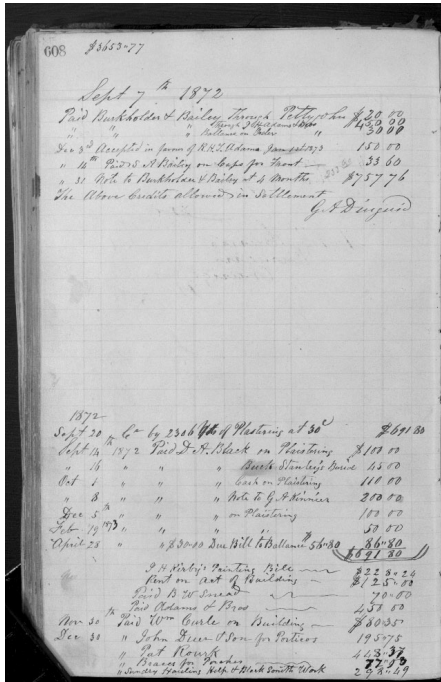 608 $3653-77
Sept 7th 1872
Paid Burkholder & Bailey Through Petty $20.00
" " " Through Adams & Bros $450 00
" " " Ballance on Order " 30 00
Dec 3rd Accepted in favor of R.H.T. Adams, Jan 1st 1873 150 00
" 16th Paid S A Bailey on Caps for Front 33 60
" 30 Note to Burkholder & Bailey at 4 Months $757 76
The Above Credits allowed in Settlement
G. A Diuguid
1872
Sept 20th Cr by 2306 Yds of Plastering at 30c $691 80
Sept 14th 1872 Paid D. A. Black on Plaistring $100 00
" 16 " " " Buck Stanley's 45 00
Oct 1 " " " Cash on Plaistring 110 00
" 18 " " " Note to G A Kinnier 200 00
Dec 5th " " " on Plaistring 100 00
Feb 19th 1873 " " " 50 00
April 28 " " $30.00 Due Bill to Ballance $56.80 86.80
$691 80
J H Kirby's Painting Bill $228.24
Rent on Act of Building $125.00
Paid B. W Snead 70.00
Paid Adams & Bros 450 00
Nov 30th Paid Wm Curle on Building $80 35
Dec 30 " John Duer & Son for Porticos 195.75
" Pat Rourk 448.37
" Braces for Porches 77.03
" Sundry Hauling Help & Black Smith Work 298.49